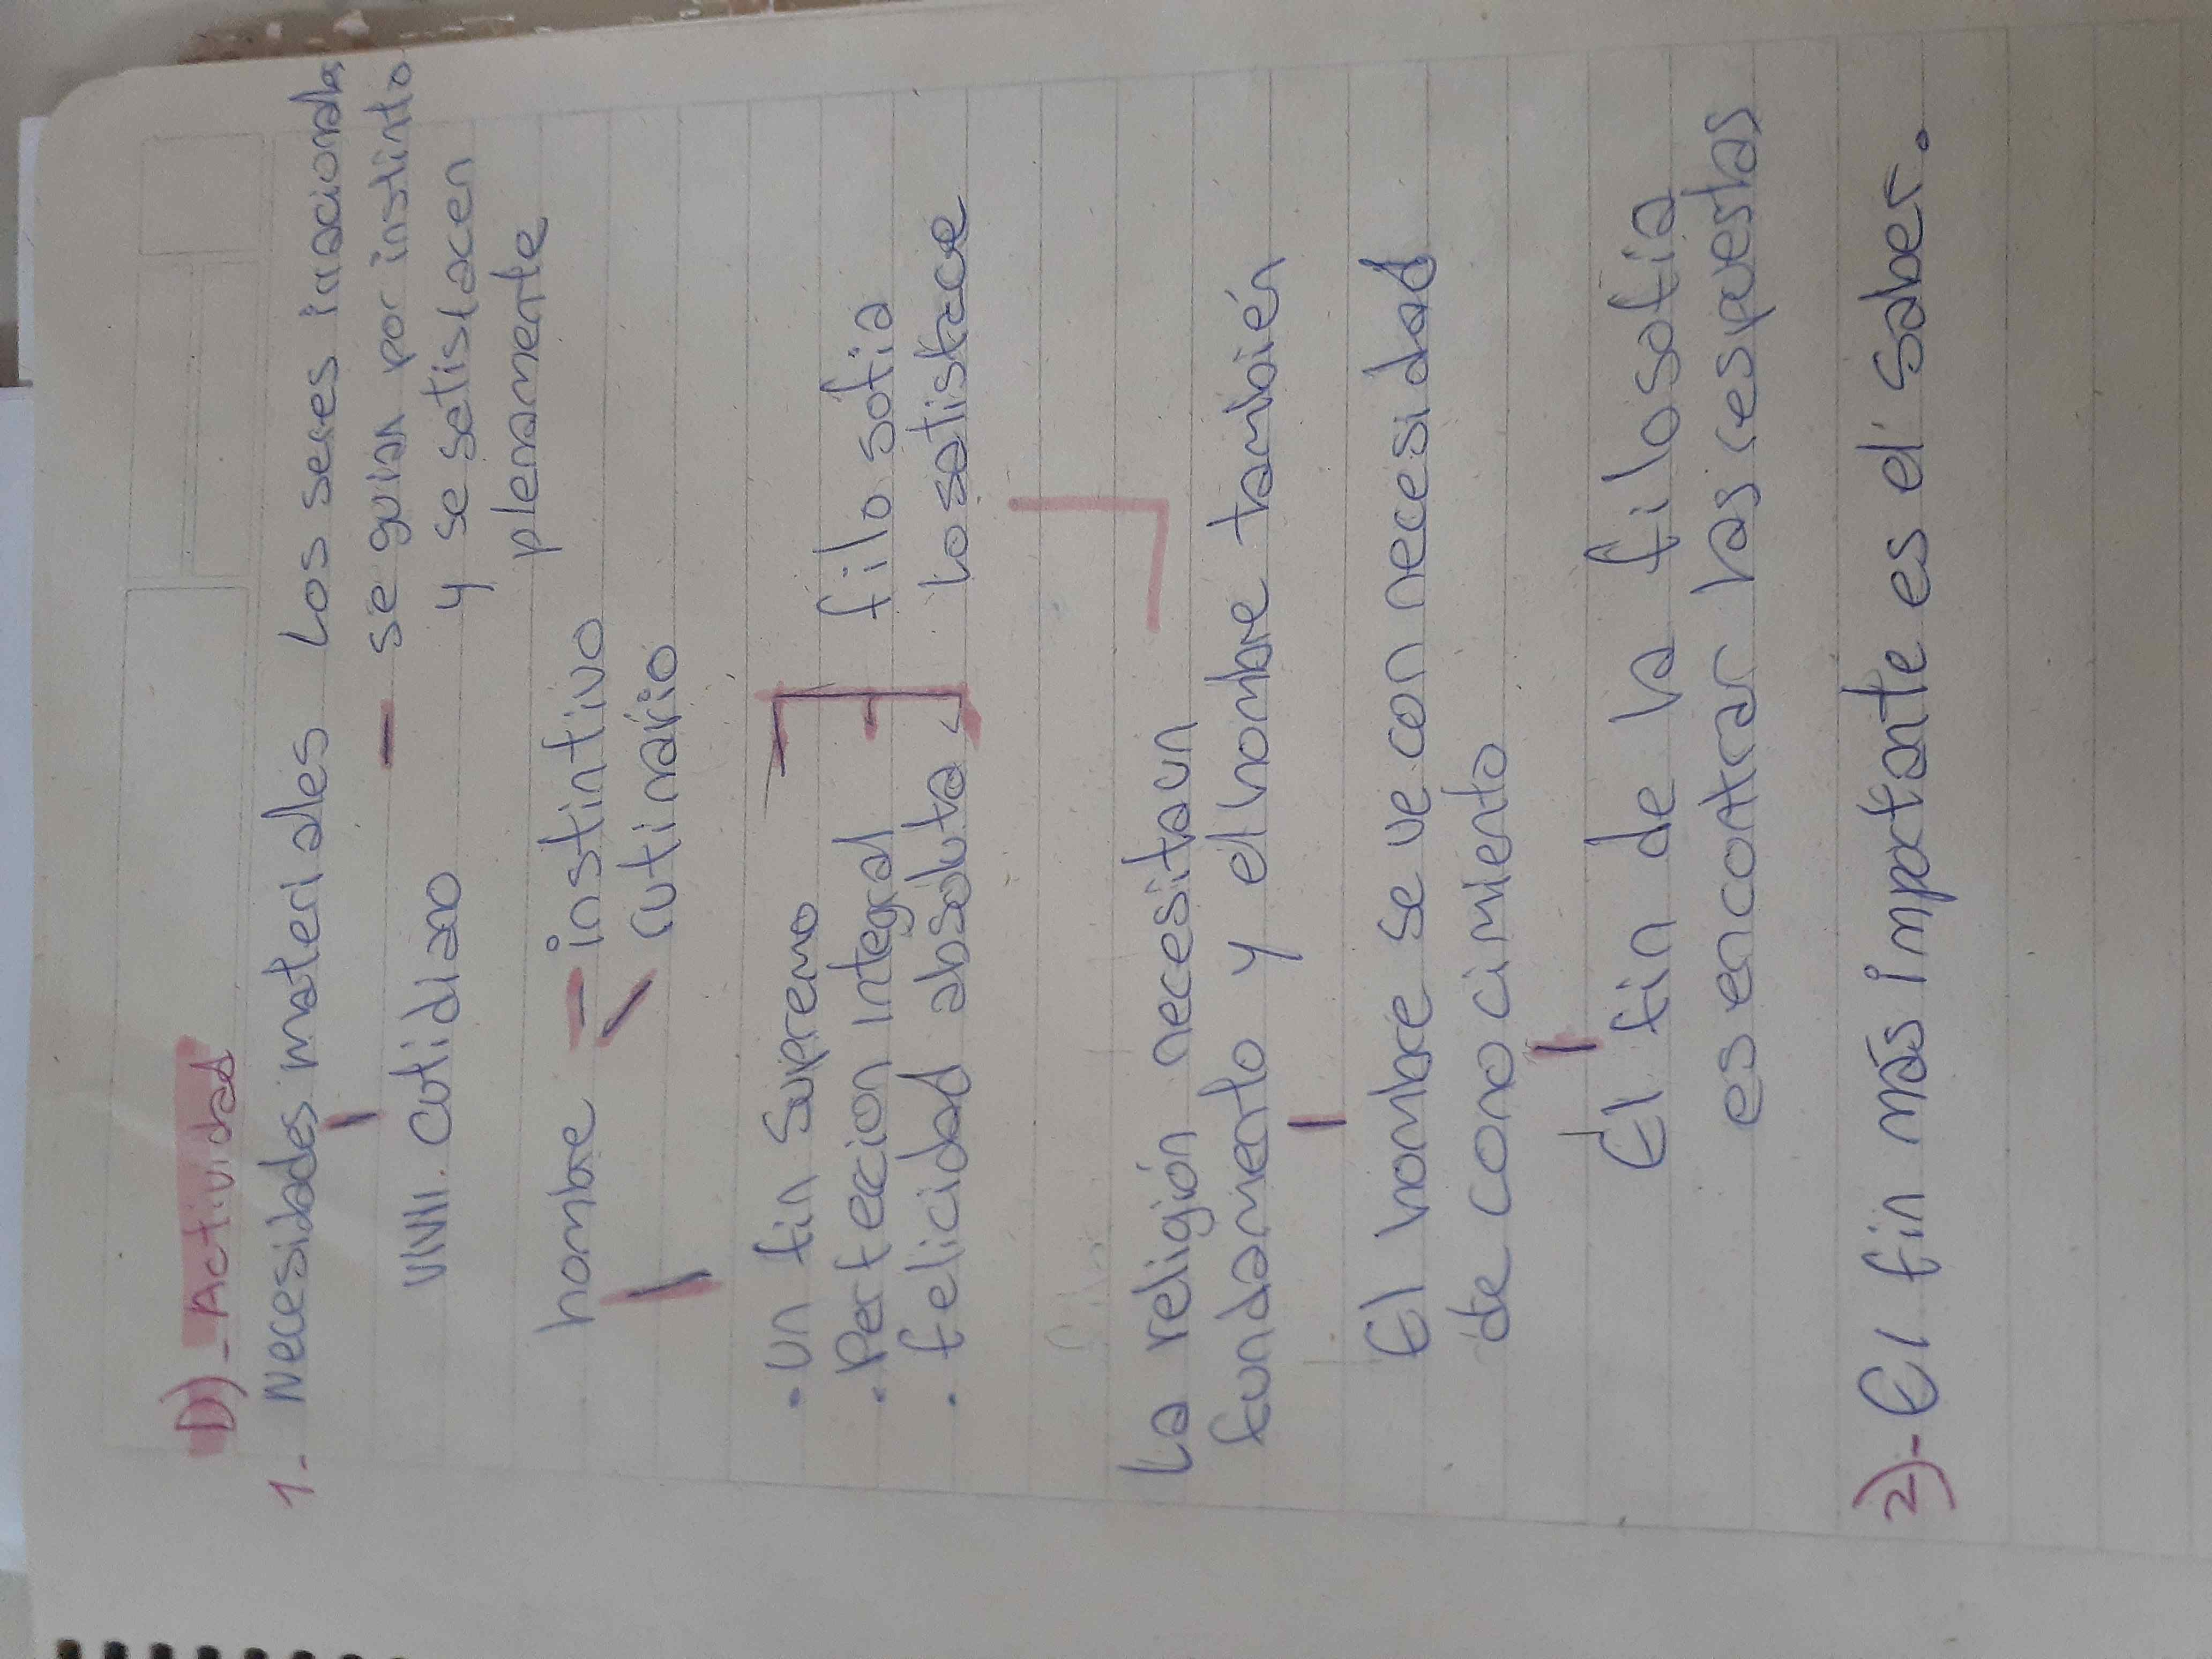 D)- Actividad
1- Necesidades materiales Los seres irracionales
se guian por instinto
vivir cotidiano y se satisfacen
plenamente
hombre instintivo
rutinario
. un fin supremo
. Perfeccion integral filosofia
. felicidad absoluta lo satisface
La religión necesita un
fundamento y el hombre también
El hombre se ve con necesidad
de conocimiento
El fin de la filosofia
es encontrar las respuestas
2)- El fin más importante es el saber.